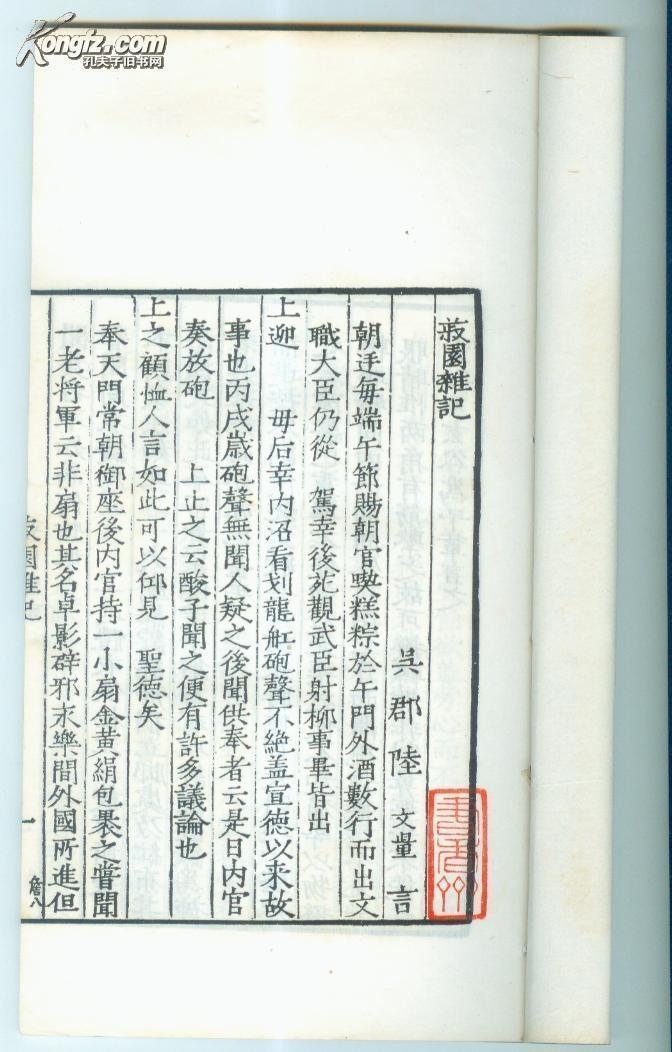 Kongfz.com
孔夫子旧书网
菽園雜記
吳郡陸文量言
朝廷每端午節賜朝官喫糕粽於午門外酒數行而出文
職大臣仍從 駕幸後苑觀武臣射柳事畢皆出
上迎 毋后幸內沼看划龍舡砲聲不絕盖宣德以来故
事也丙戌歲砲聲無聞人疑之後聞供奉者云是日内官
奏放砲 上止之云酸子聞之便有許多議論也
上之顧恤人言如此可以仰見 聖德矣
奉天門常朝御座後内官持一小扇金黃絹包褁之嘗聞
一老将軍云非扇也其名卓影辟邪永樂間外國所進但
菽園雜記
一
詹八